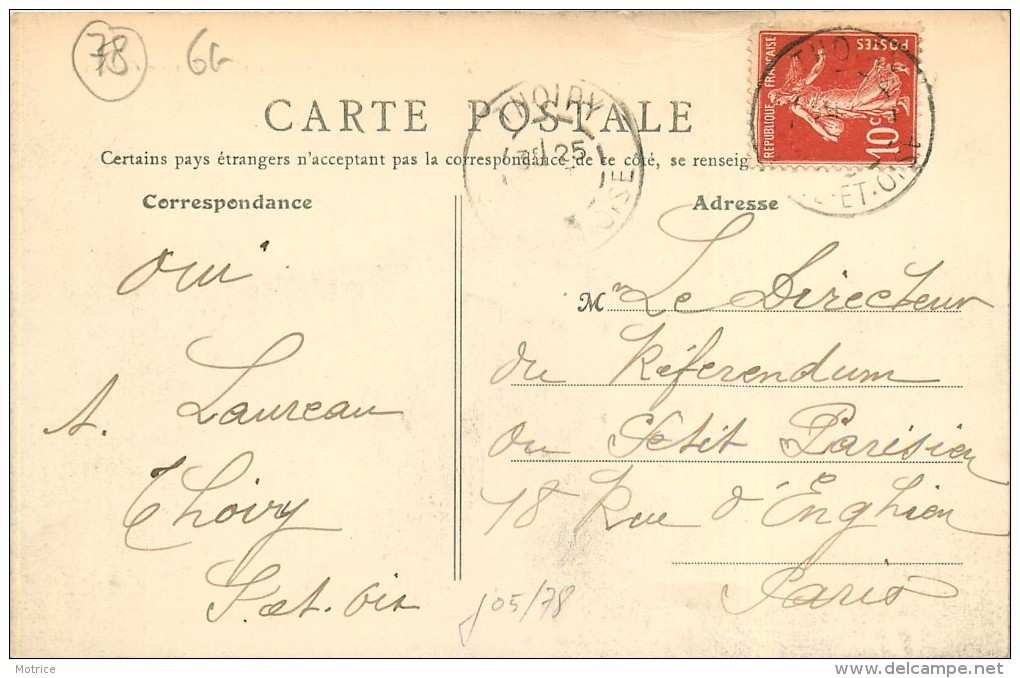 78 6G
CARTE POSTALE
Certains pays étrangers n'acceptant pas la correspondance de ce côté, se renseig
THOIRY
25
OISE
REPUBLIQUE FRANÇAISE
POSTES
10c
THO
ET-OISE
Correspondance
Adresse
oui
A. Laureau
Thoiry
S. et. Ois
Mr Le Directeur
du Réferendum
du Petit Parisien
18 Rue d'Enghien
Paris
j05/78
Motrice
http://www.delcampe.net